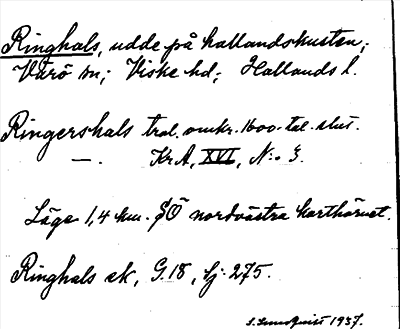 Ringhals, udde på hallandskusten;
Värö sn; Viske hd; Hallands l.
Ringershals trol. omkr. 1600-tal. slut.
—. Kr A, XVI, N:o 3.
Läge 1,4 km. SÖ nordvästra karthörnet.
Ringhals ek, G.18, bj. 275.
S. Lundqvist 1937.